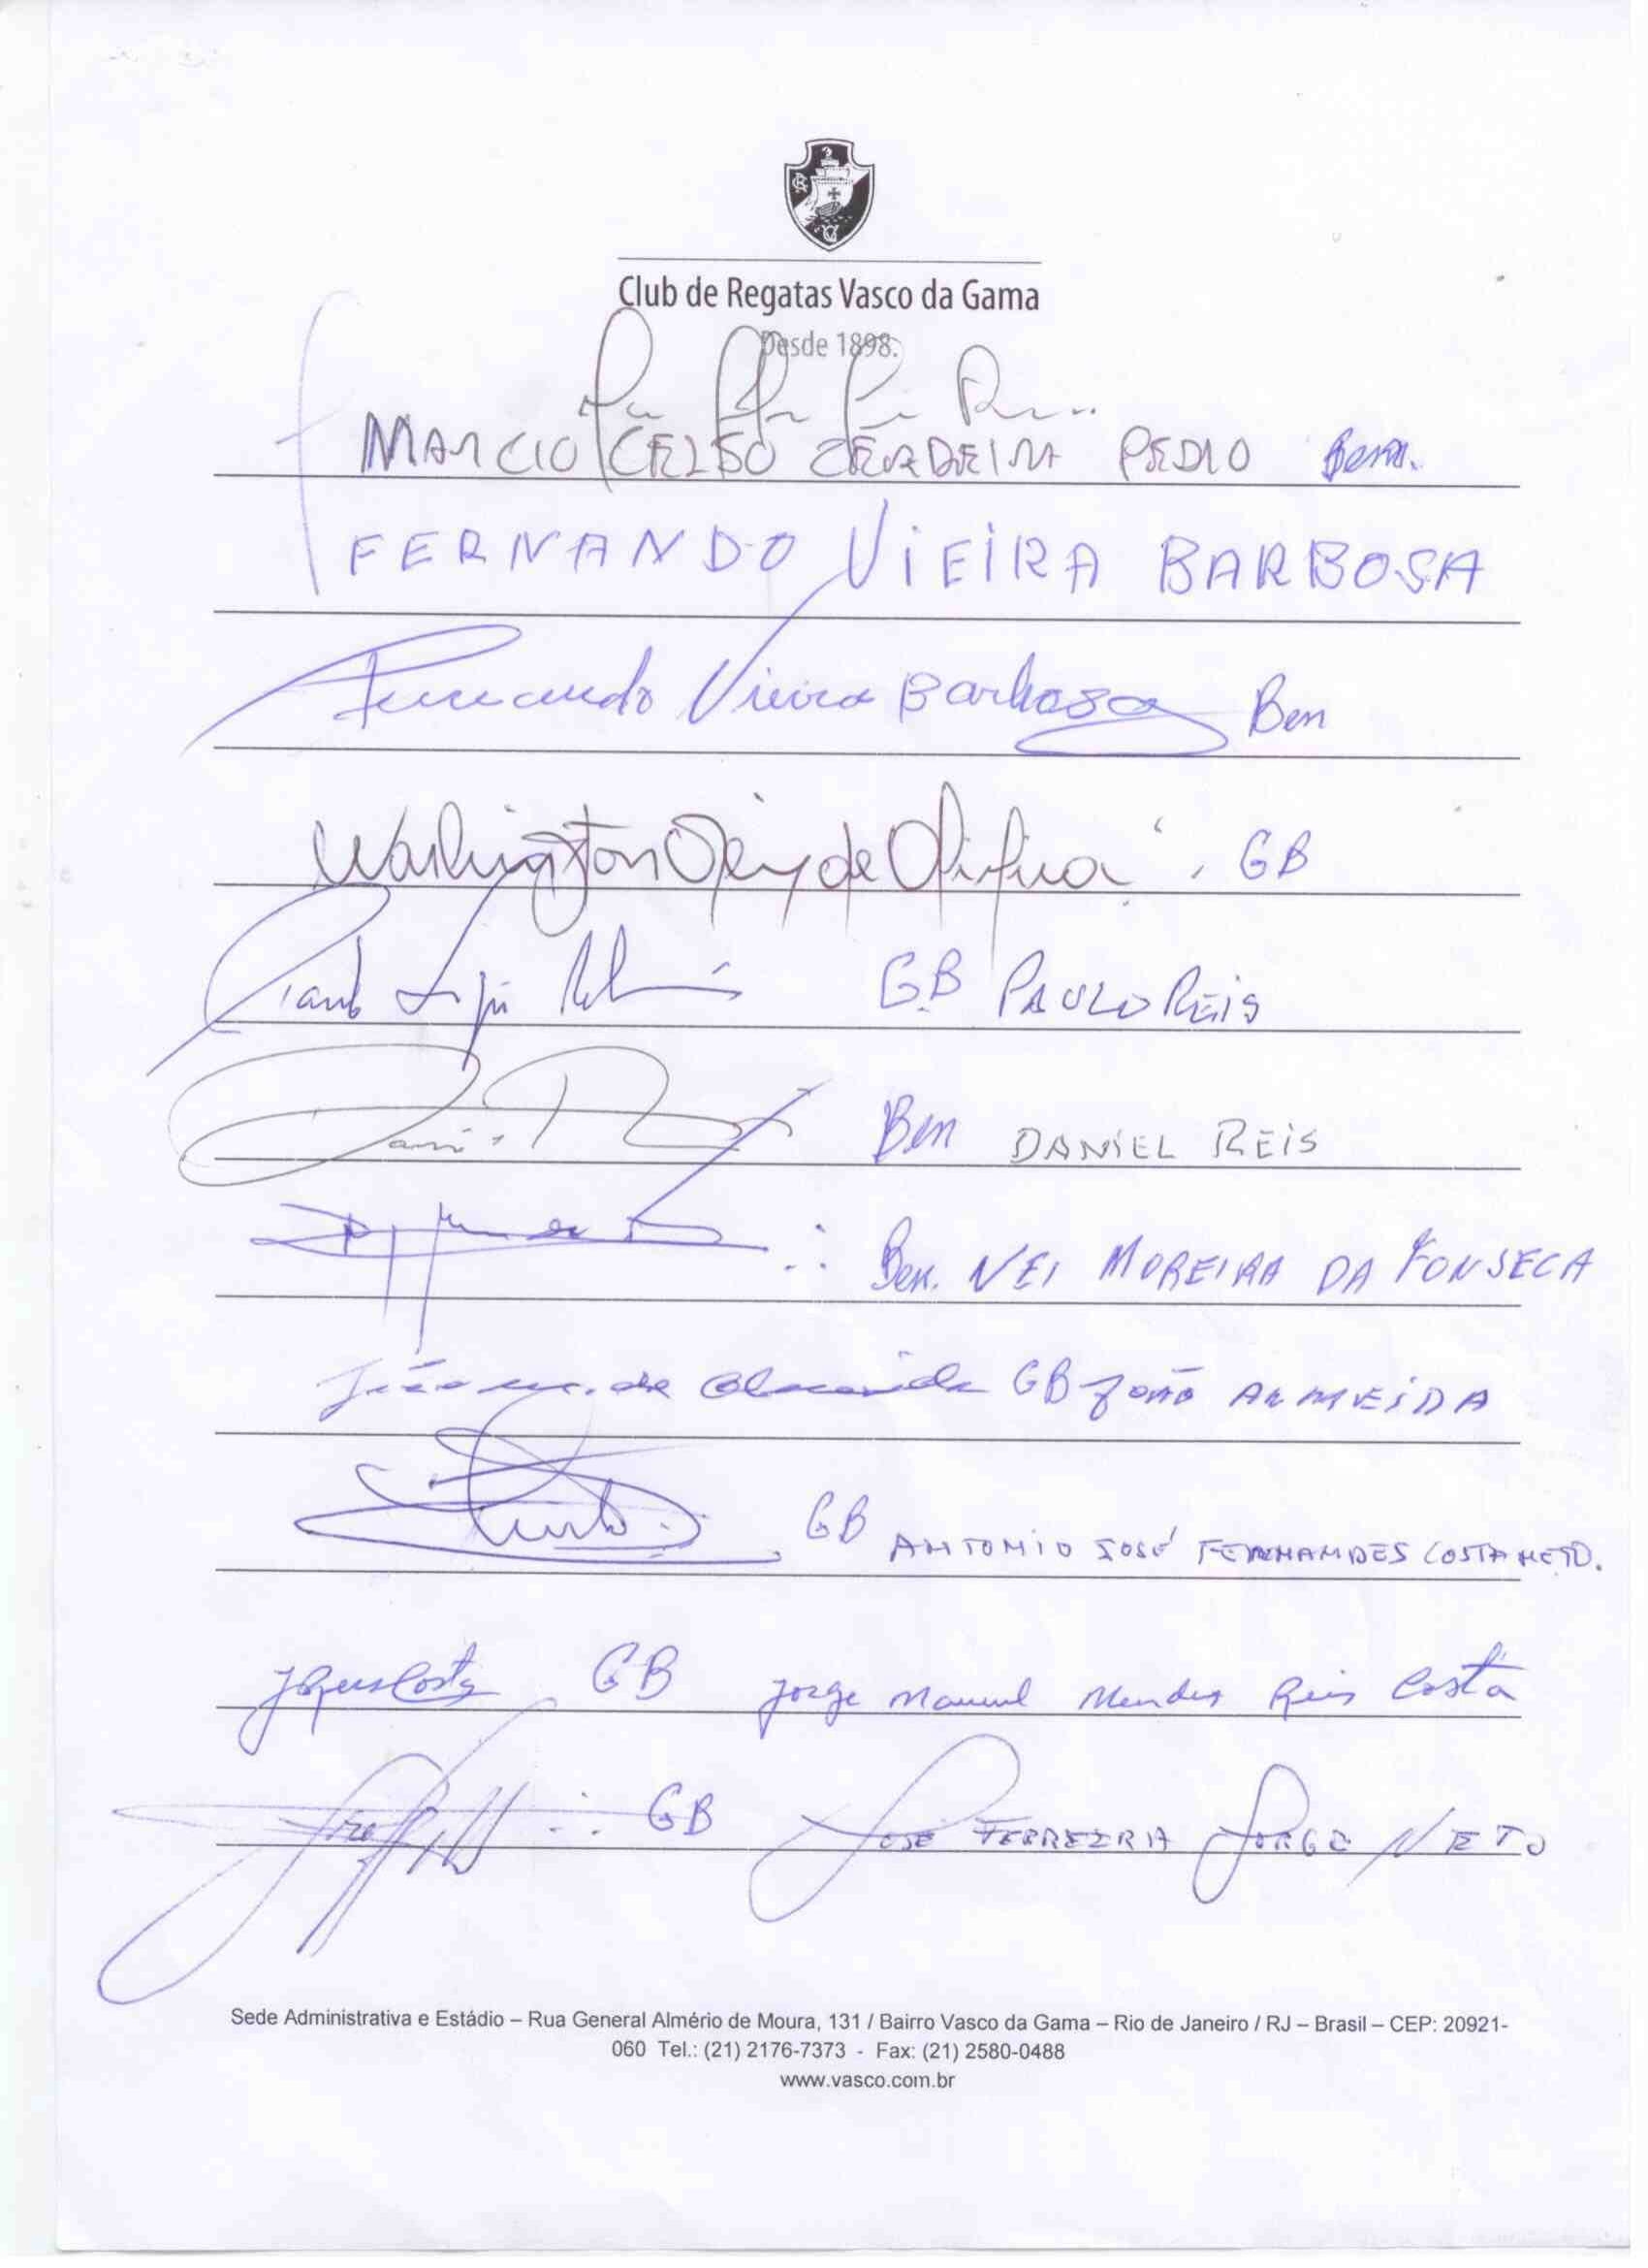 Club de Regatas Vasco da Gama
Desde 1898.
MARCIO CELSO CERDEIRA PEDRO Bem.
FERNANDO VIEIRA BARBOSA
Fernando Vieira Barbosa Bem
Washington de Oliveira GB
GB PAULO REIS
Bem DANIEL REIS
Bem. NEI MOREIRA DA FONSECA
João m. de Almeida GB JOÃO ALMEIDA
GB ANTONIO JOSÉ FERNANDES COSTA NETO.
GB Jorge Manuel Mendes Reis Costa
GB JOSÉ FERREIRA JORGE NETO
Sede Administrativa e Estádio – Rua General Almério de Moura, 131 / Bairro Vasco da Gama – Rio de Janeiro / RJ – Brasil – CEP: 20921-
060 Tel.: (21) 2176-7373 - Fax: (21) 2580-0488
www.vasco.com.br